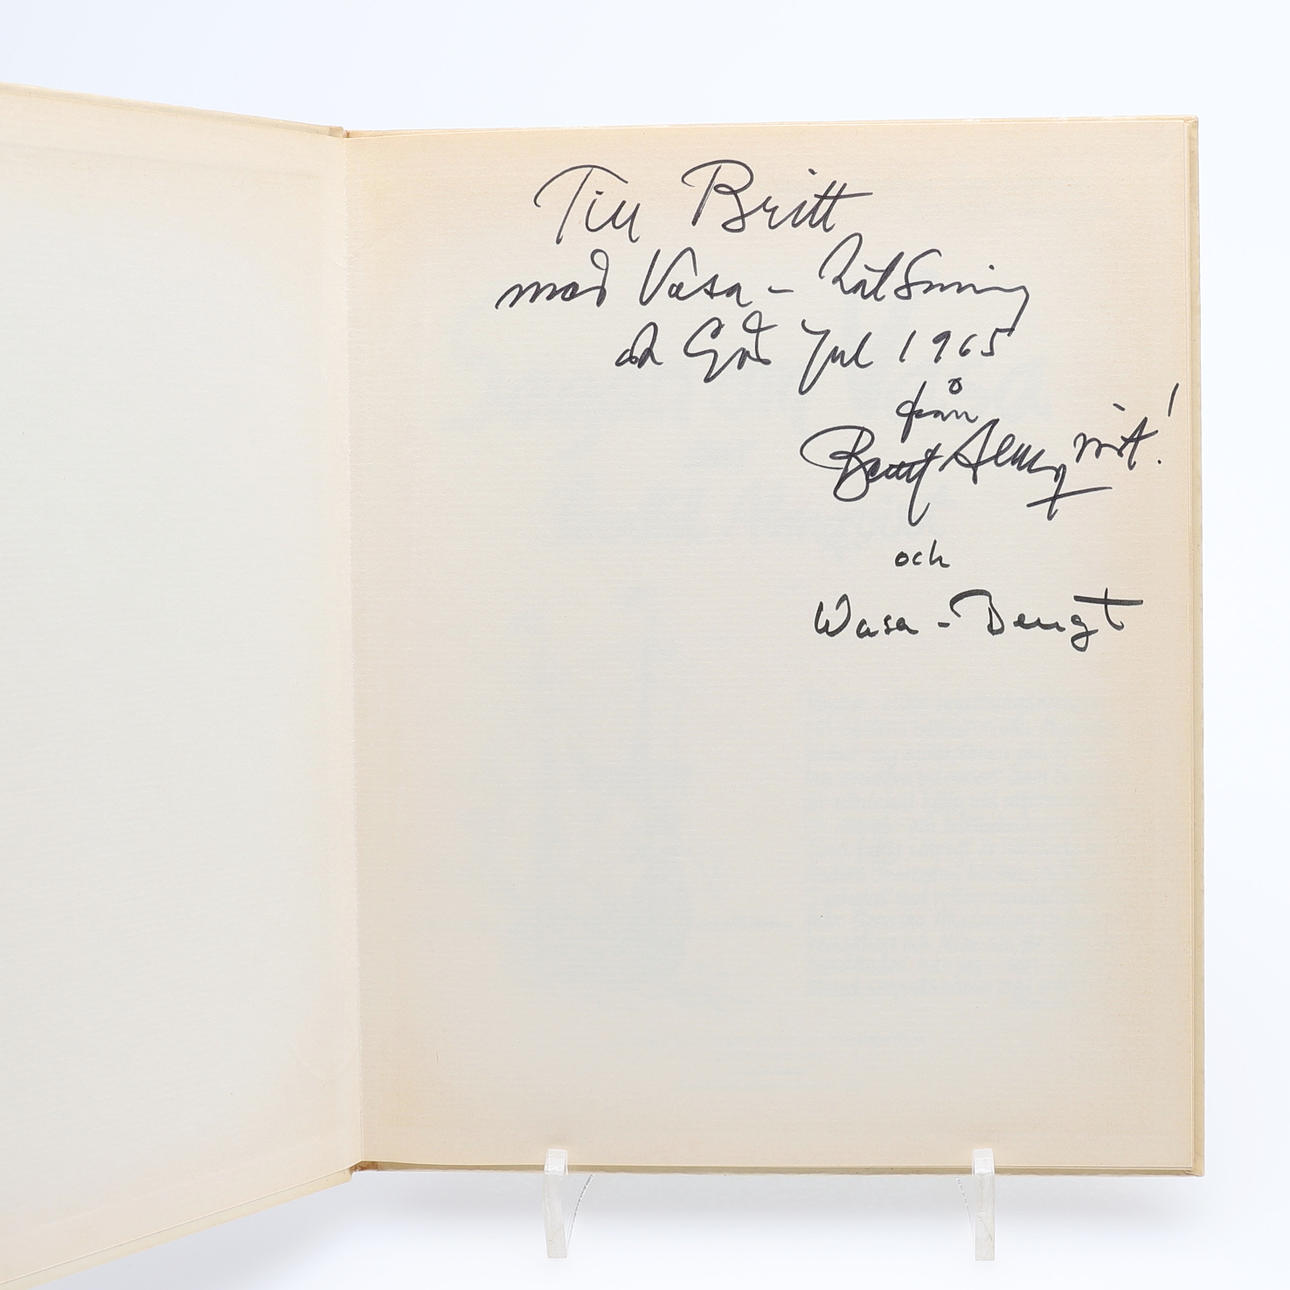 Till Britt
med Vasa-hälsning
och God Jul 1965
från
Bengt Almqvist!
och
Wasa-Bengt